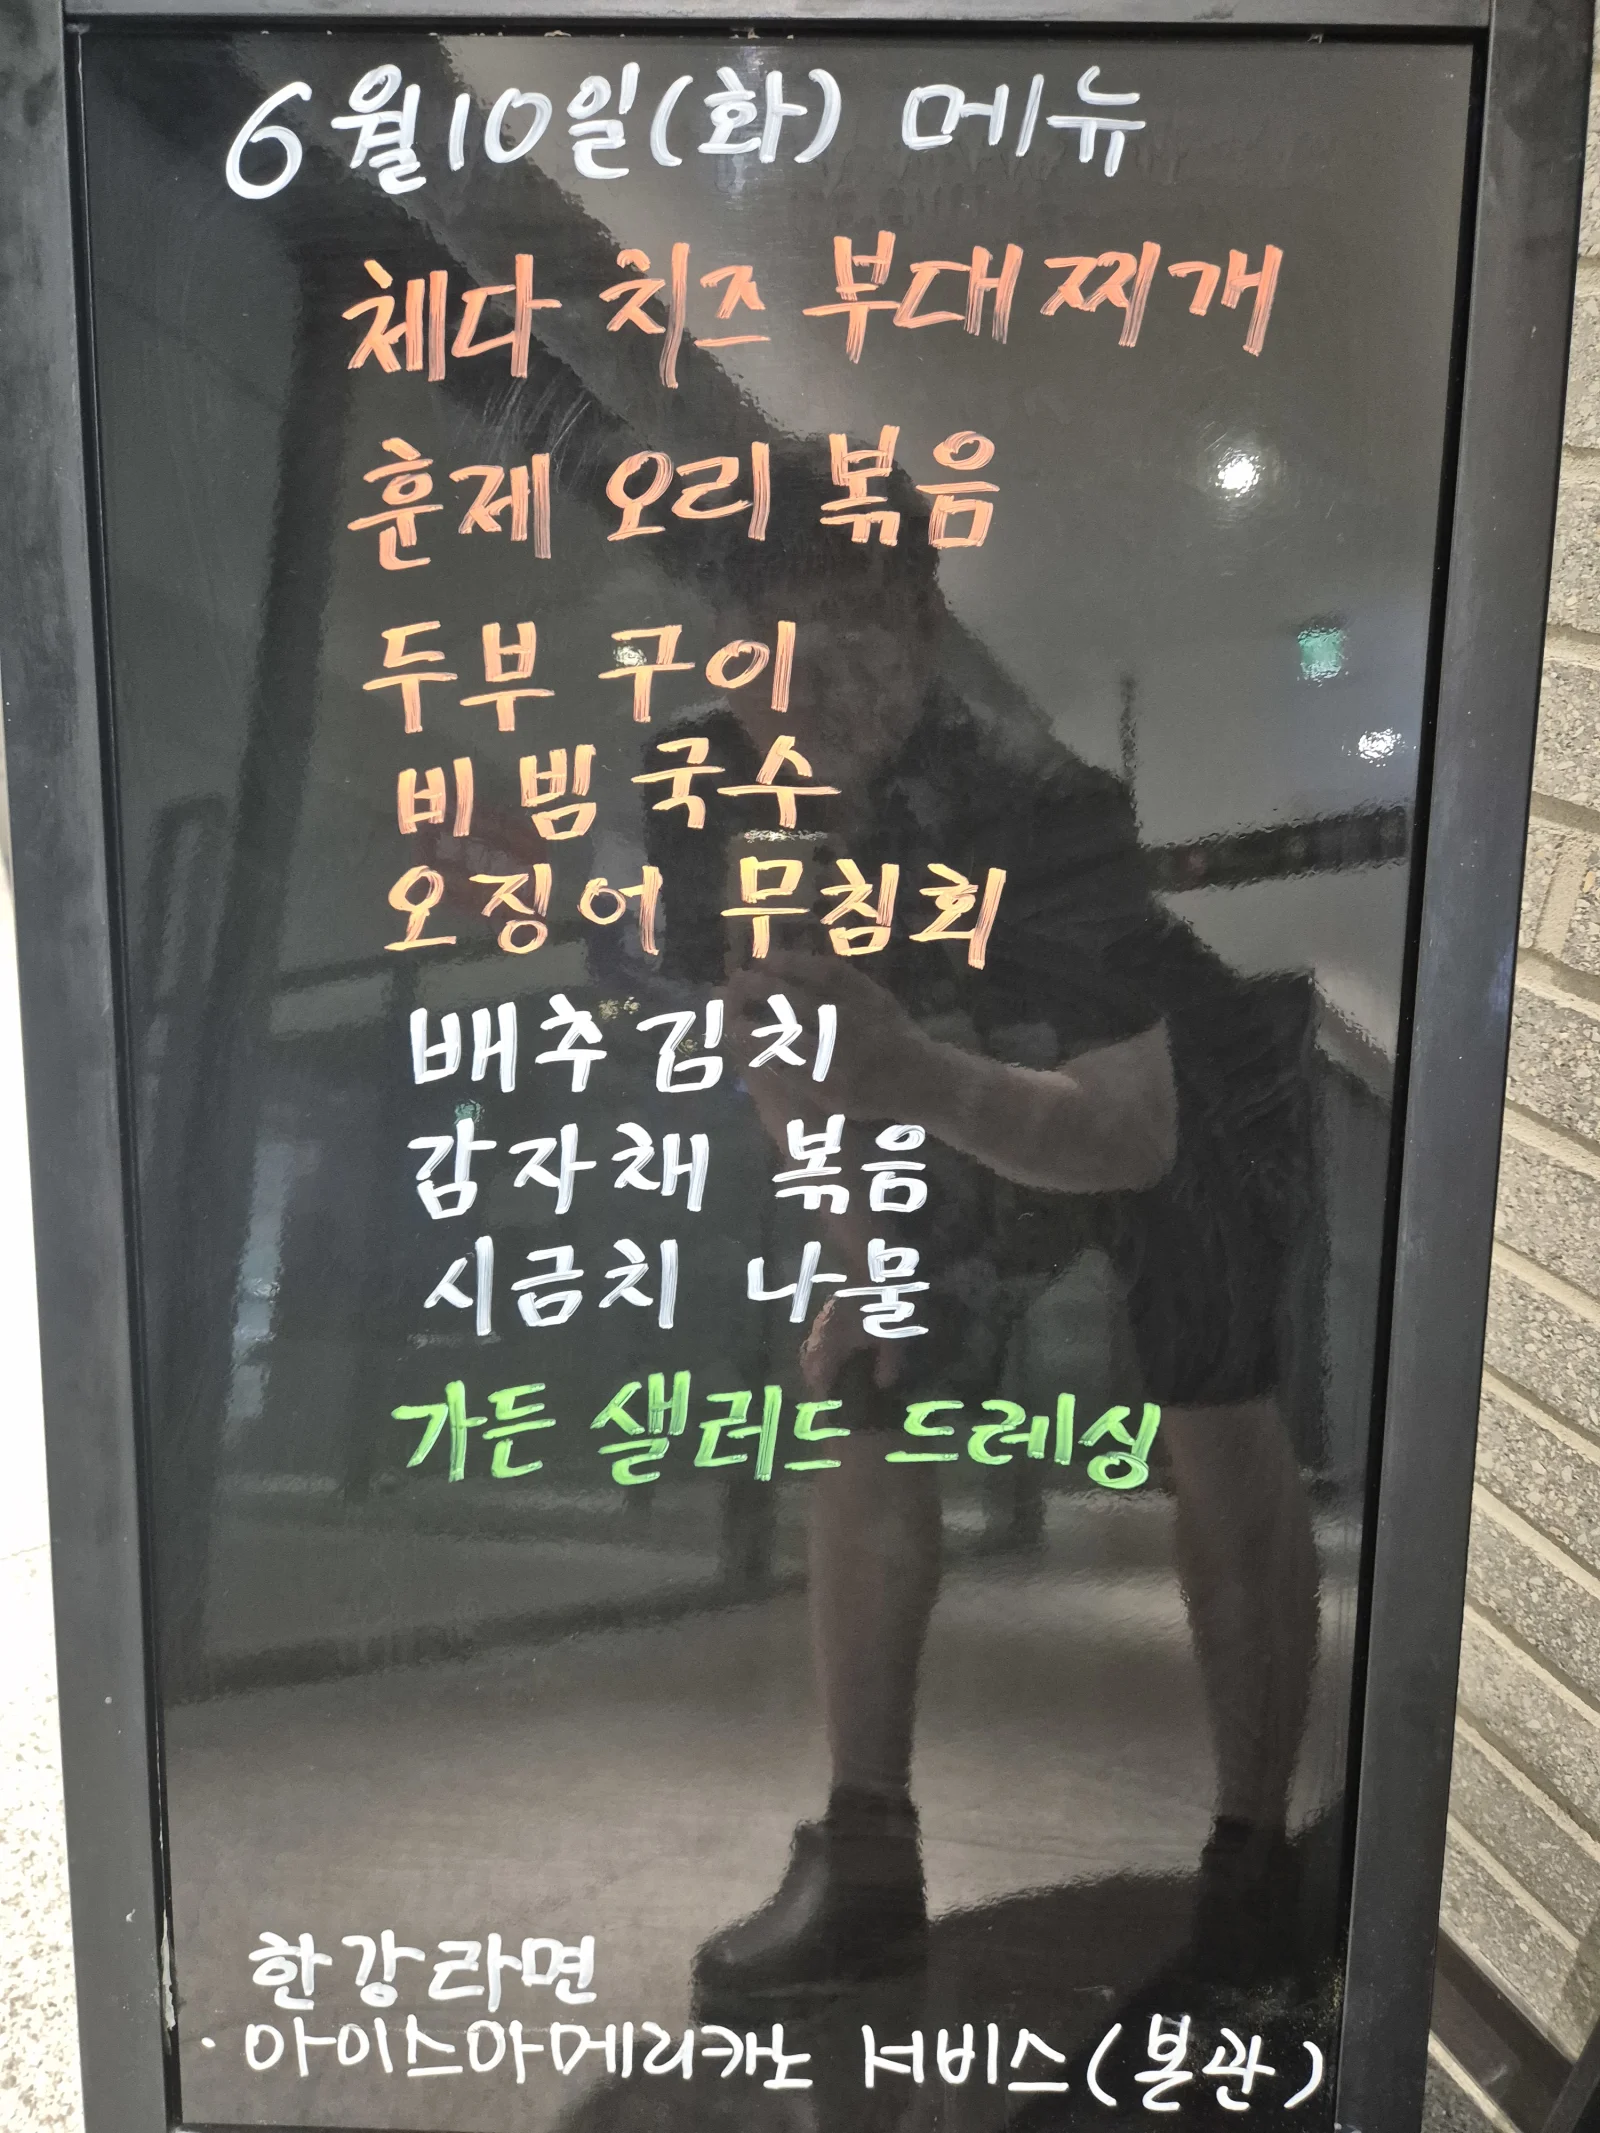 6월10일(화) 메뉴
체다 치즈 부대찌개
훈제 오리 볶음
두부 구이
비빔국수
오징어 무침회
배추김치
감자채 볶음
시금치 나물
가든 샐러드 드레싱
한강라면
·아이스아메리카노 서비스(본관)